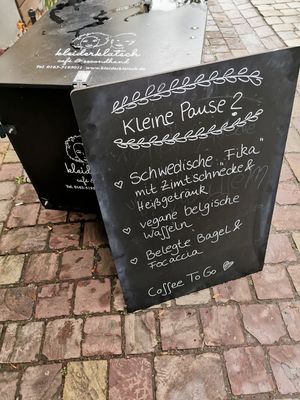 kleiderklatsch
café & secondhand
kleiderklatsch
Kleine Pause?
Schwedische "Fika"
mit Zimtschnecke &
Heißgetränk
vegane belgische
Waffeln
Belegte Bagel &
Focaccia
Coffee To Go